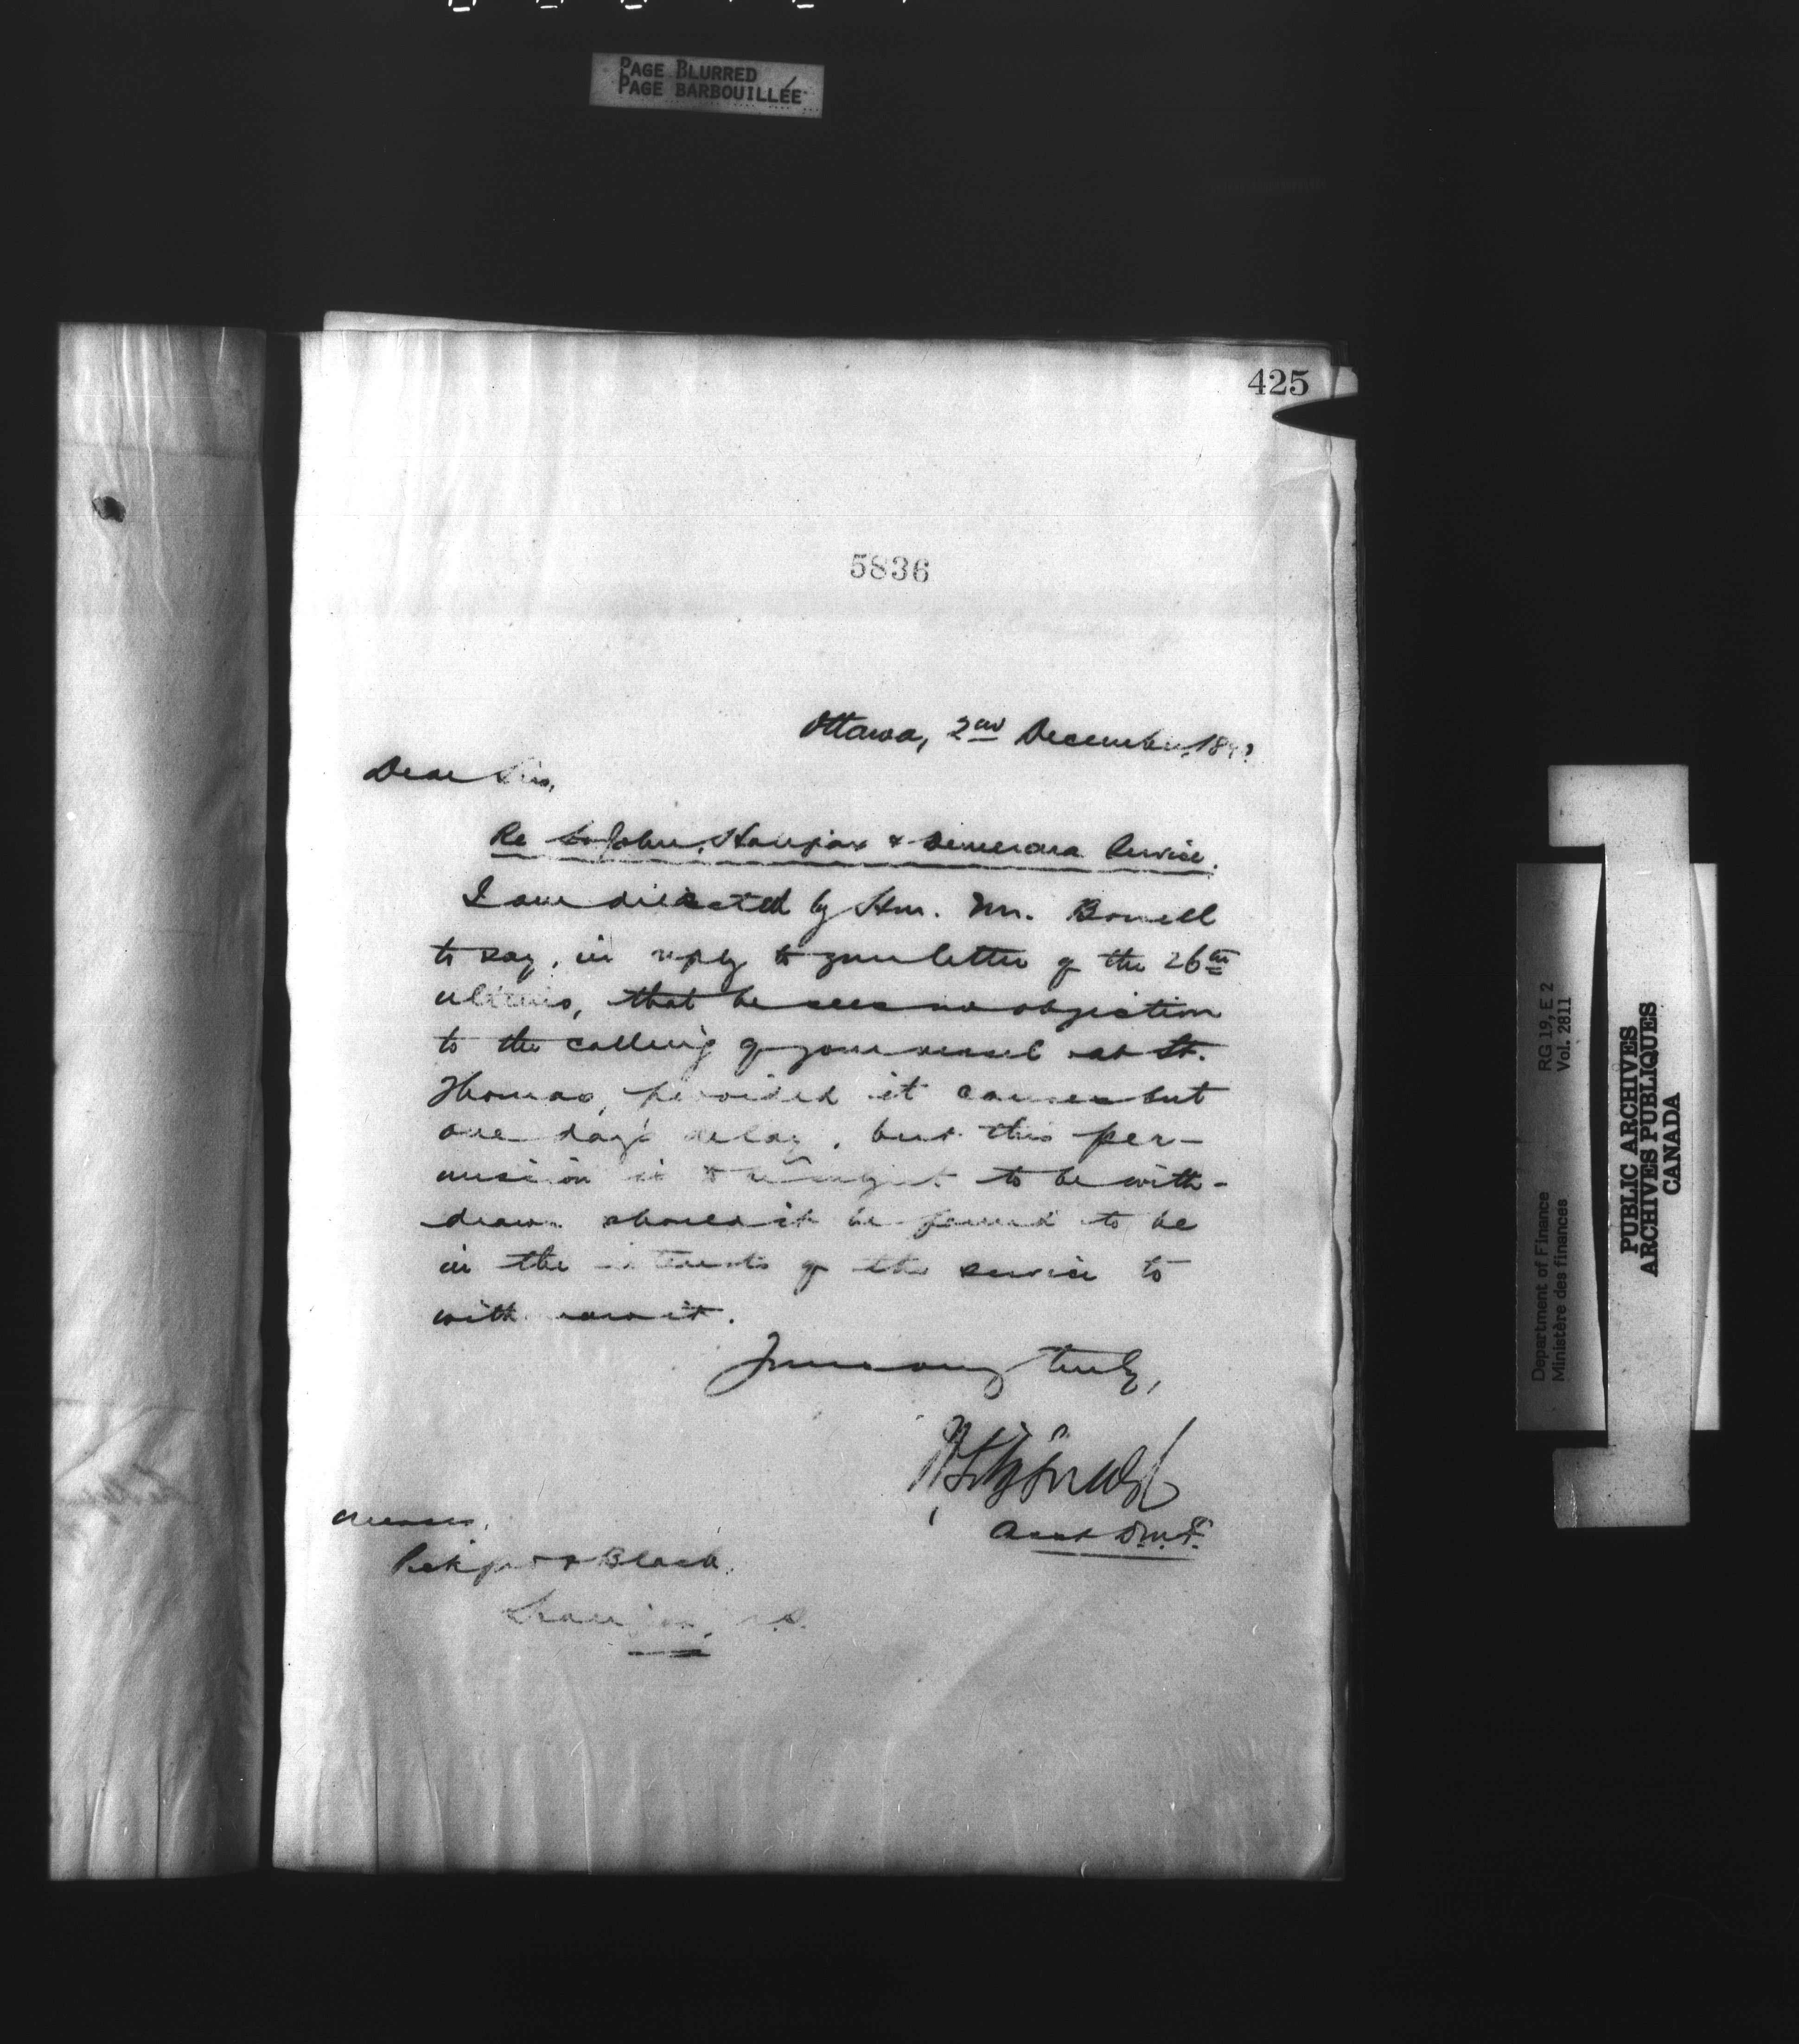 PAGE BLURRED
PAGE BARBOUILLÉE
425
5836
Ottawa, 2nd December, 189
Dear Sirs,
Re St John, Halifax & Demerara Service.
I am directed by Hon. Mr. Bowell
to say, in reply to your letter of the 26th
ultimo, that he sees no objection
to the calling of your vessel at St.
Thomas, provided it causes but
one day's delay, but this per-
mission is to be subject to be with-
drawn should it be found to be
in the interests of the service to
withdraw it.
Yours very truly,
Asst D.M.F.
Messrs.
Pickford & Black,
Halifax, N.S.
RG 19, E 2
Vol. 2811
Department of Finance
Ministère des finances
PUBLIC ARCHIVES
ARCHIVES PUBLIQUES
CANADA